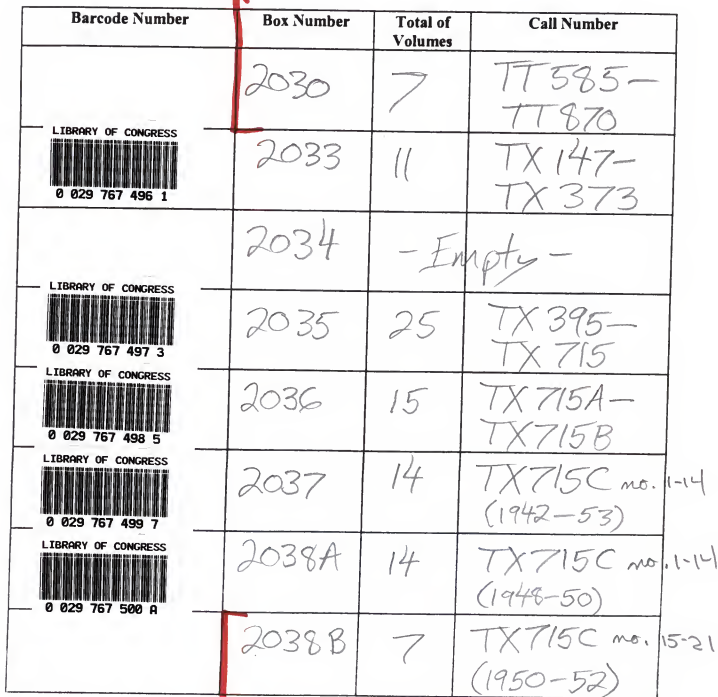 Barcode Number Box Number Total of Volumes Call Number
2030 7 TT 585—
TT 870
LIBRARY OF CONGRESS
0 029 767 496 1
2033 11 TX 147—
TX 373
2034 - Empty -
LIBRARY OF CONGRESS
0 029 767 497 3
2035 25 TX 395—
TX 715
LIBRARY OF CONGRESS
0 029 767 498 5
2036 15 TX 715A—
TX 715B
LIBRARY OF CONGRESS
0 029 767 499 7
2037 14 TX 715C no. 1-14
(1942—53)
LIBRARY OF CONGRESS
0 029 767 500 A
2038A 14 TX 715C no. 1-14
(1948-50)
2038B 7 TX 715C no. 15-21
(1950-52)